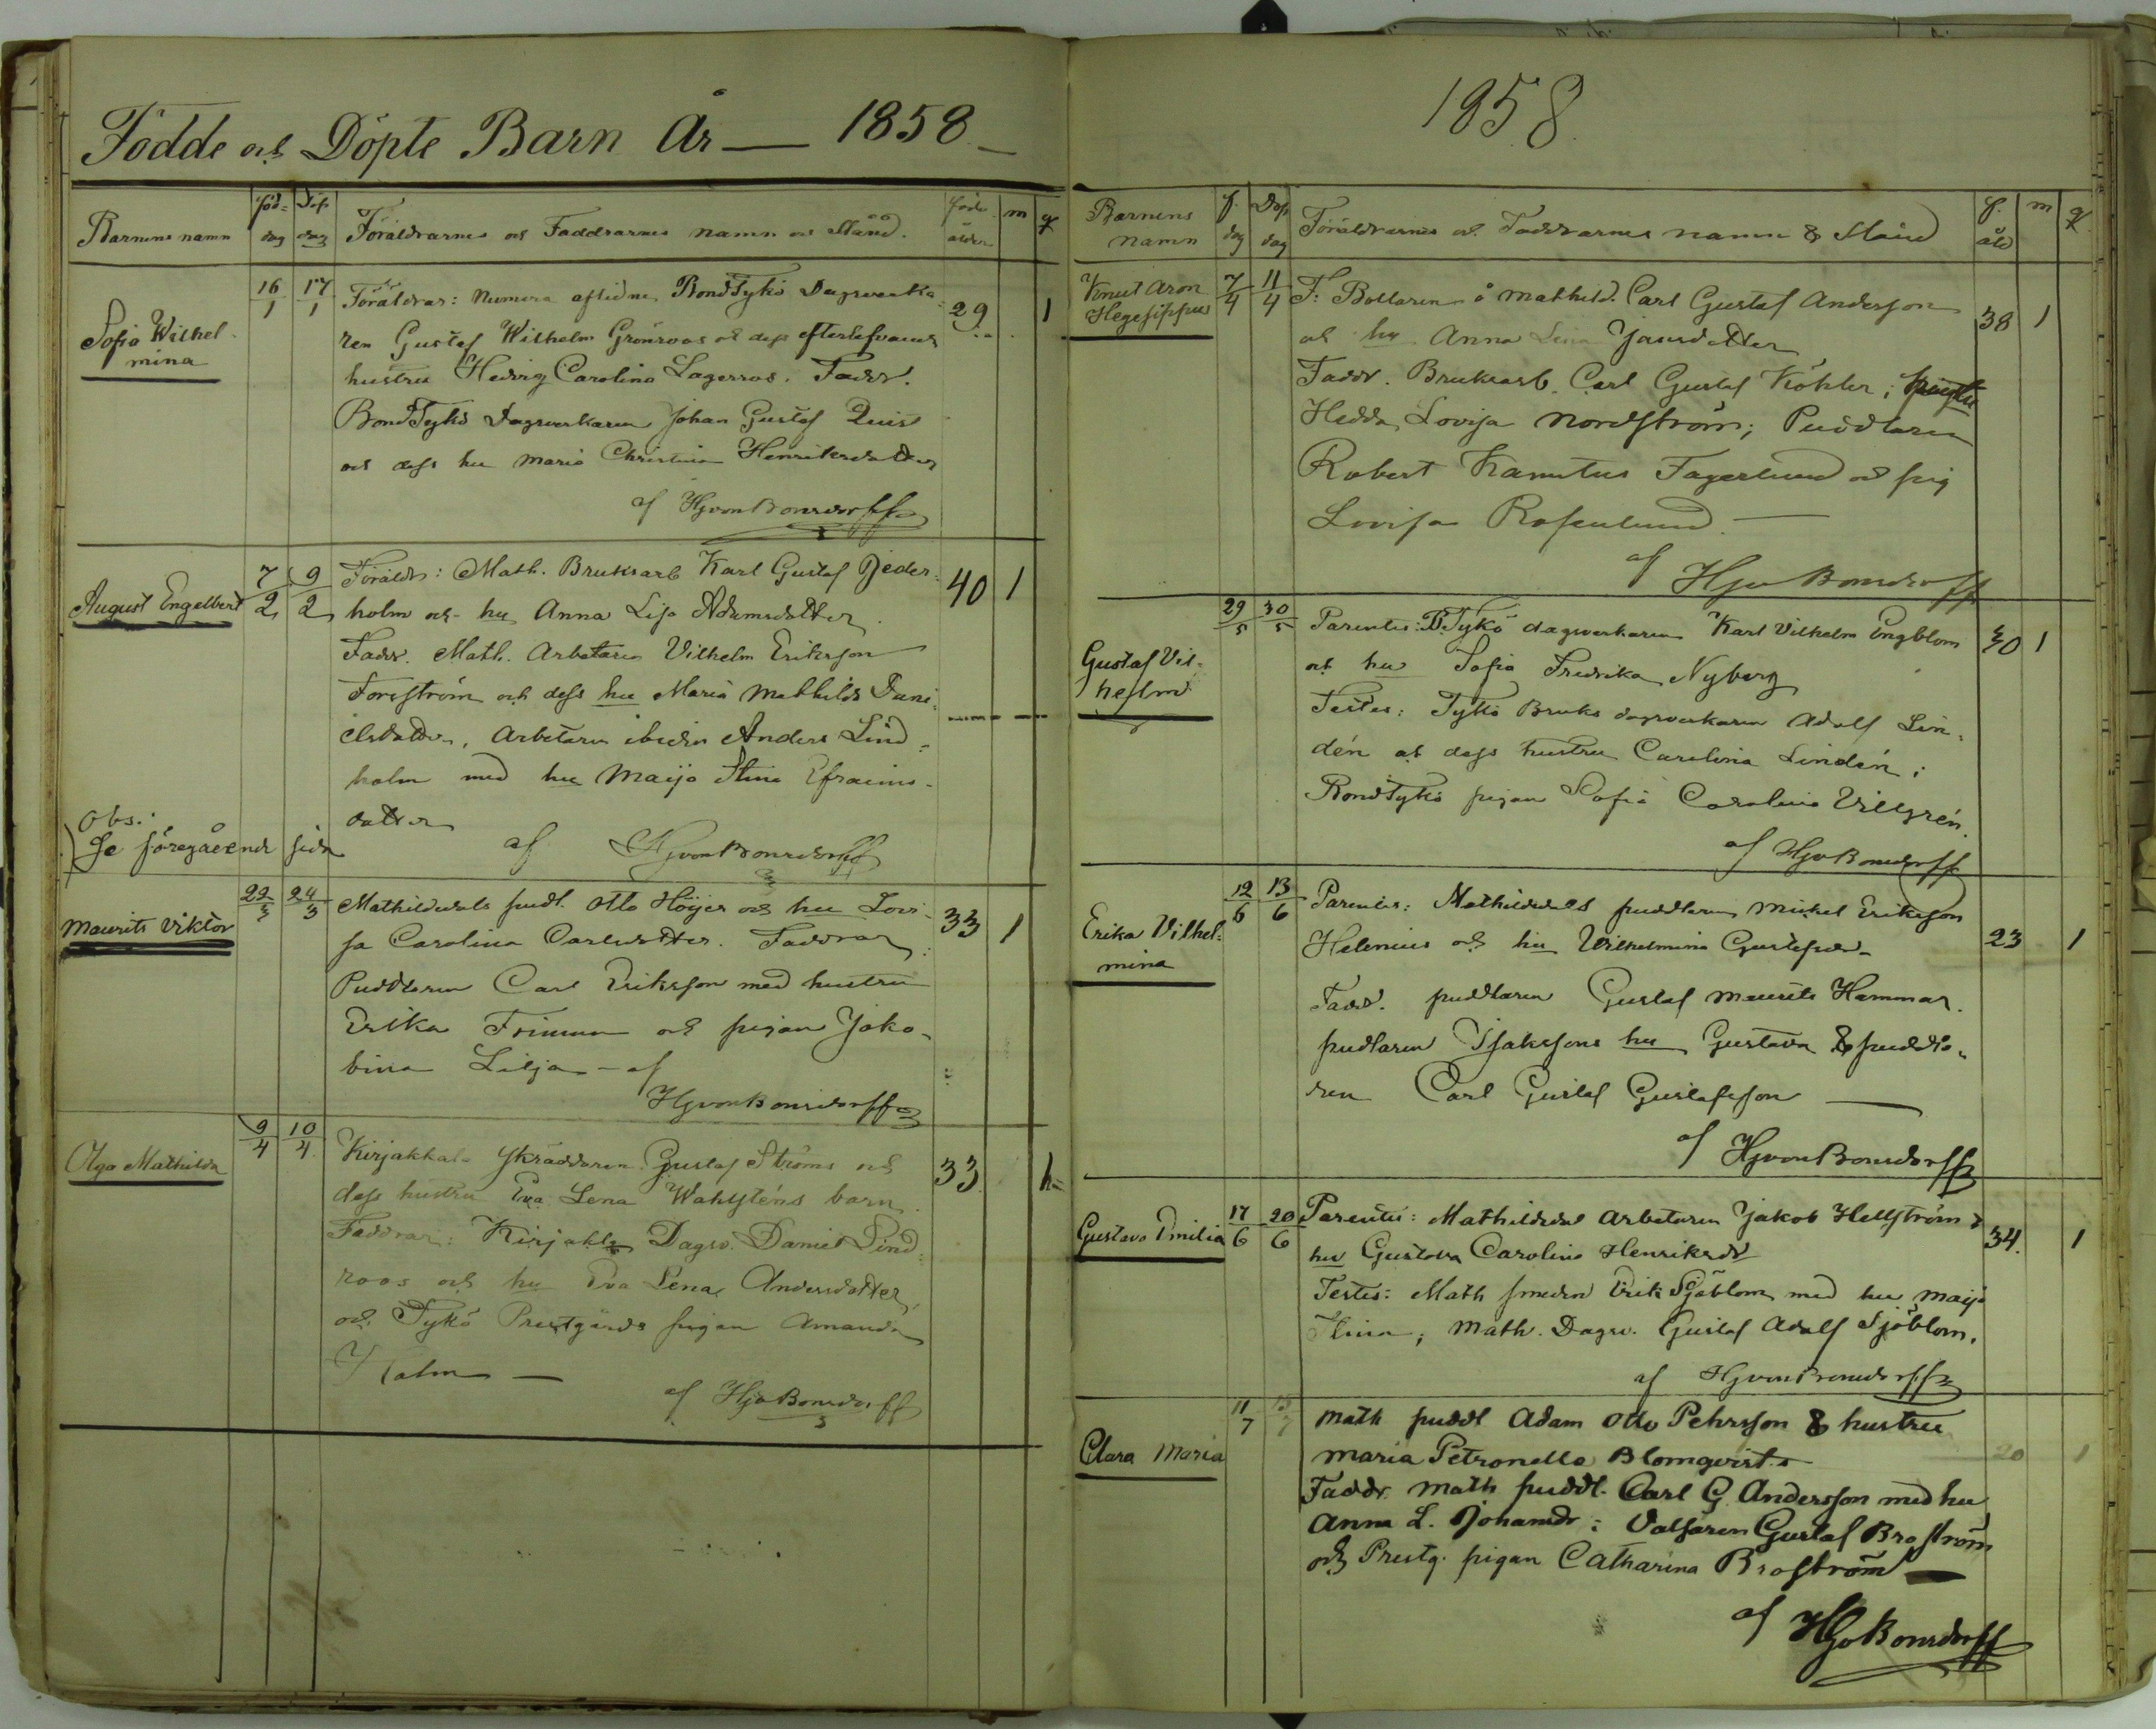 Födde och Döpte Barn År — 1858 —
Barnens namn
föd= dag
Döp dag
Föräldrarnes och Faddrarnes namn och Stånd.
ålder
m
q
Sofia Wilhel-
mina
16/1 17/1
Föräldrar: Numera aflidne BondTykö Dagsverka-
ren Gustaf Wilhelm Grönroos och dess efterlefvande
hustru Hedvig Carolina Lagerroos. Faddr.
BondTykö Dagsverkaren Johan Gustaf Quist
och dess hu Maria Christina Henriksdotter
af HJvonBonsdorff
29 1
August Engelbert
7/2 9/2
Föräldr: Math. Bruksarb Karl Gustaf Jeder-
holm och hu Anna Lisa Adamsdotter
Faddr. Math. Arbetaren Vilhelm Eriksson
Forsström och dess hu Maria Mathilda Dani-
elsdotter, Arbetaren ibidm Anders Lind-
holm med hu Maija Stina Efraims-
dotter
af HJvonBonsdorff
40 1
Obs.
Se föregående sida
Maurits Viktor
22/3 24/3
Mathildedals pudl. Otto Höijer och hu Lovi-
sa Carolina Carlsdotter. Faddrar:
Puddlaren Carl Eriksson med hustru
Erika Friman och pigan Jako-
bina Lilja — af
HJvonBonsdorff
33 1
Olga Mathilda
9/4 10/4
Kirjakkala Skräddaren Gustaf Ströms och
dess hustru Eva Lena Wahlsténs barn.
Faddrar: Kirjakkala Dagsv. Daniel Lind-
roos och hu Eva Lena Andersdotter,
och Tykö Prestgårds pigan Amanda
Holm —
af HJvBonsdorff
33 1
1858.
Barnens
namn
f. dag
Dop dag
Föräldrarnes och Faddrarnes namn & Stånd
f. åld
m
q
Knut Aron
Hegesippus
7/4 11/4
F: Bollaren å Mathild. Carl Gustaf Andersson
och hu Anna Lina Jansdotter
Faddr. Bruksarb. Carl Gustaf Köhler;
Hedda Lovisa Nordström; Puddlaren
Robert Kanutus Fagerlund och pig
Lovisa Rosenlund —
af HJvBonsdorff
38 1
Gustaf Vil-
helm
29/5 30/5
Parentes: B.Tykö dagsverkaren Karl Vilhelm Engblom
och hu Sofia Fredrika Nyberg
Testes: Tykö Bruks dagsverkaren Adolf Lin-
dén och dess hustru Carolina Lindén;
BondTykö pigan Sofia Carolina Villgrén.
af HJvBonsdorff
30 1
Erika Vilhel-
mina
12/6 13/6
Parentes: Mathildedals puddlaren Mickel Eriksson
Helenius och hu Wilhelmina Gustafsd.
Fadd. puddlaren Gustaf Maurits Hammar.
pudlaren Isakssons hu Gustava & puddla-
ren Carl Gustaf Gustafsson —
af HJvonBonsdorff
23 1
Gustava Emilia
17/6 20/6
Parentes: Mathildedal Arbetaren Jakob Hellström &
hu Gustava Carolina Henriksdr
Testes: Math smeden Erik Sjöblom med hu Maija
Stina; Math. Dagsv. Gustaf Adolf Sjöblom.
af HJvonBonsdorff
34. 1
Clara Maria
11/7 15/7
Math puddl Adam Otto Pehrsson & hustru
Maria Petronella Blomqvist.
Faddr. Math puddl. Carl G. Andersson med hu
Anna L. Johansdr; Valsaren Gustaf Broström
och Prestg. pigan Catharina Broström —
af HJvBonsdorff
20 1